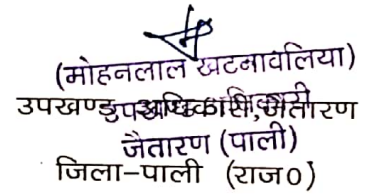 (मोहनलाल खटनावलिया)
उपखण्ड अधिकारी, जैतारण
जैतारण (पाली)
जिला-पाली (राज०)